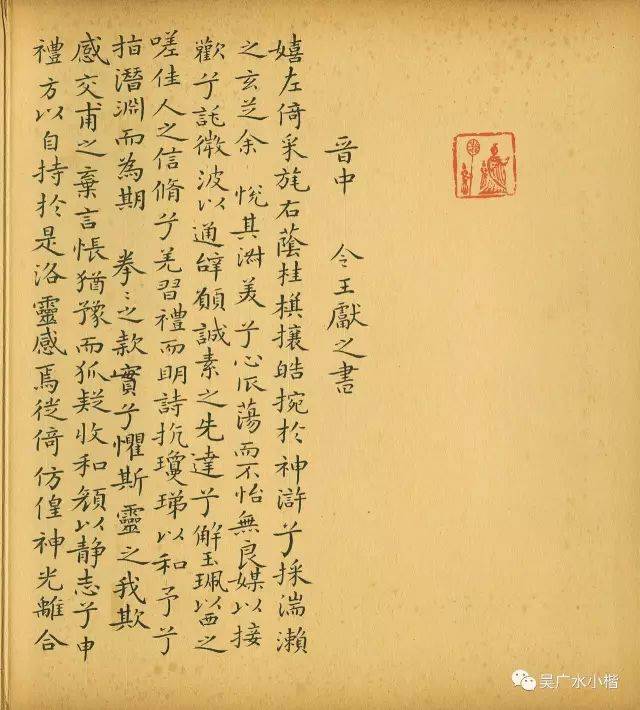 晋中 令王獻之書
嬉左倚采旄右蔭桂棋攘皓捥於神滸兮採湍瀨
之玄芝余 悅其淑美兮心振蕩而不怡無良媒以接
歡兮託微波以通辭願誠素之先達兮解玉珮以要之
嗟佳人之信脩兮羌習禮而明詩抗瓊珶以和予兮
指潛淵而為期 拳〻之款實兮懼斯靈之我欺
感交甫之棄言悵猶豫而狐疑收和顏以静志兮申
禮方以自持於是洛靈感焉徙倚仿偟神光離合
吴广水小楷